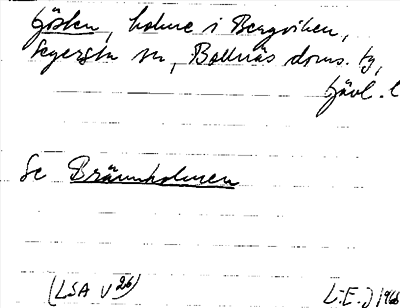 Gösken, holme i Bergviken,
Segersta sn, Bollnäs doms. tg,
Gävl. l
Se Brännholmen
(LSA V 26) L.E.J 1966